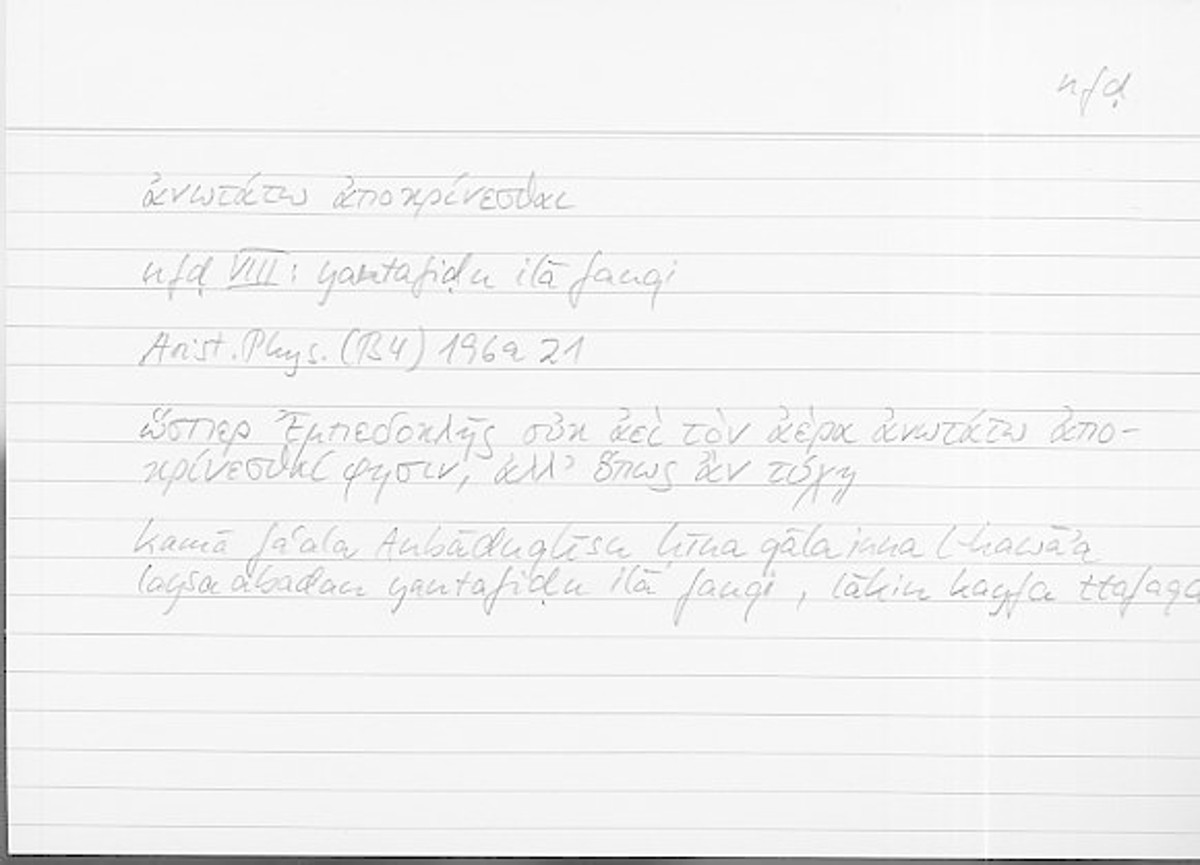 nfḍ
ἀνωτάτω ἀποκρίνεσθαι
nfḍ VIII: yantafiḍu ilā fauqi
Arist. Phys. (B4) 196a 21
ὥσπερ Ἐμπεδοκλῆς οὐκ ἀεὶ τὸν ἀέρα ἀνωτάτω ἀπο-
κρίνεσθαί φησιν, ἀλλ’ ὅπως ἂν τύχῃ
kamā faʿala Anbāduqlīsu ḥīna qāla inna l-hawāʾa
laysa abadan yantafiḍu ilā fauqi, lākin kayfa ttafaqa